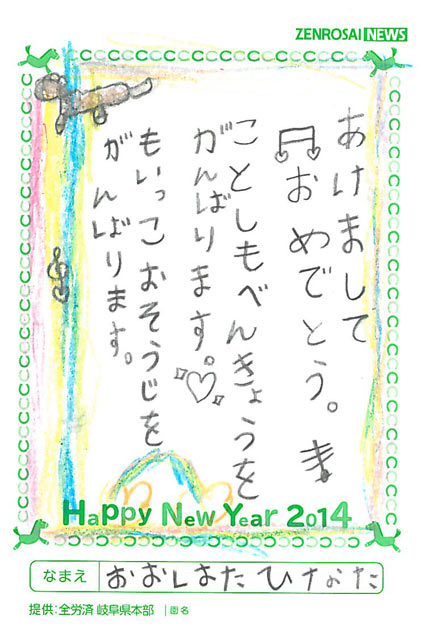 ZENROSAI NEWS
あけまして
おめでとう。
ことしもべんきょうを
がんばります。
もいっこおそうじを
がんばります。
Happy New Year 2014
なまえ おおしはたひなた
提供:全労済 岐阜県本部 | 園名